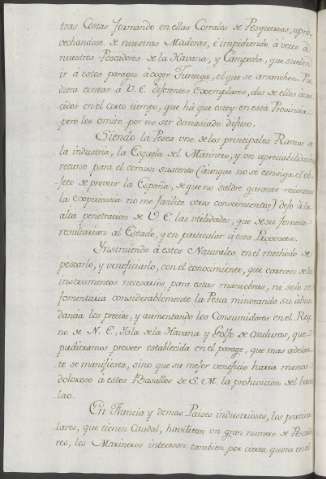 tras Costas formando en ellas Corrales de Pesquerias, apro-
vechandose de nuestras Maderas, é impidiendo á veces á
nuestros Pescadores de la Havana, y Campeche, que suelen
ir á estos parages á coger Tortuga, el que se arranchen. Pu-
diera contar á V. E. diferentes exemplares, dos de ellos acae-
cidos en el corto tiempo, que há que estoy en esta Provincia
pero los omito por no ser demasiado difuso.
Siendo la Pesca uno de los principales Ramos de
la industria, la Escuela del Marinero, y un apreciabilisimo
recurso para el comun sustento (aunque no se tenga el ob-
jeto de proveer la España, de que no saldré garante mientras
la experiencia no me facilite otros conocimientos) dejo á la
alta penetracion de V. E. las utilidades, que de su fomento
resultarian al Estado, y en particular á esta Provincia.
Instruiendo á estos Naturales en el methodo de
pescarlo, y veneficiarlo, con el conocimiento, que carecen de los
instrumentos necesarios para estas maniobras, no solo se
fomentaria considerablemente la Pesca minorando su abun-
dancia los precios, y aumentando los Consumidores en el Rey-
no de N. E., Isla de la Havana y Golfo de Onduras, que
pudieramos proveer establecida en el parage, que mas adelan-
te se manifiesta, sino que su mejor beneficio haria menos
doloroso á estos Vasallos de S. M. la prohibicion del baca-
lao.
En Francia y demas Paises industriosos, los particu-
lares, que tienen Caudal, havilitan un gran numero de Pescado-
res, los Marineros interesan tambien por cierta quota en el